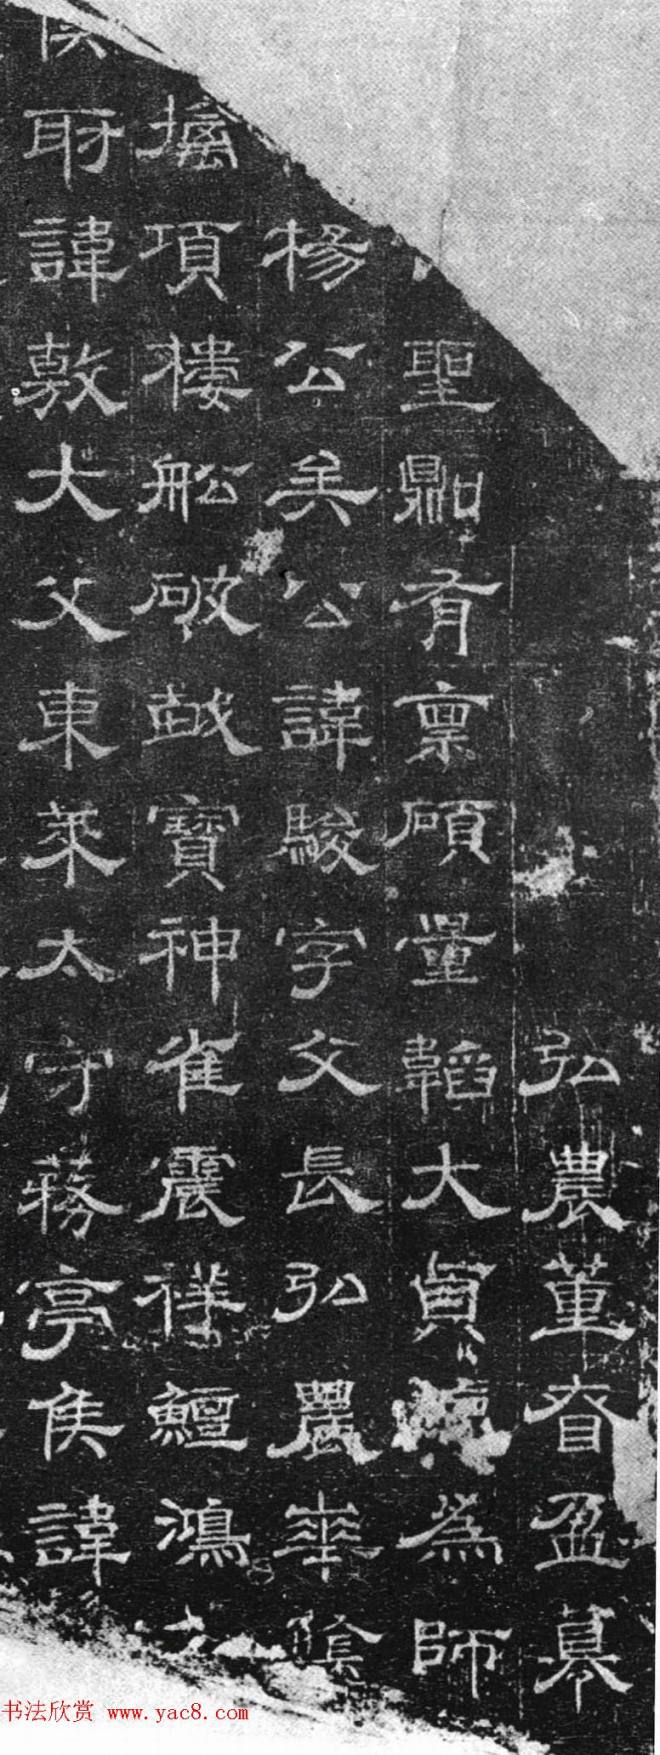 弘農董督盈募
聖有稟碩量韜大貞為師
楊公矣公諱駿字文長弘農華陰
擒項樓船破越寶神雀震祥鱣鴻
侯耴諱敷大父東萊太守蓩亭侯諱
书法欣赏 www.yac8.com